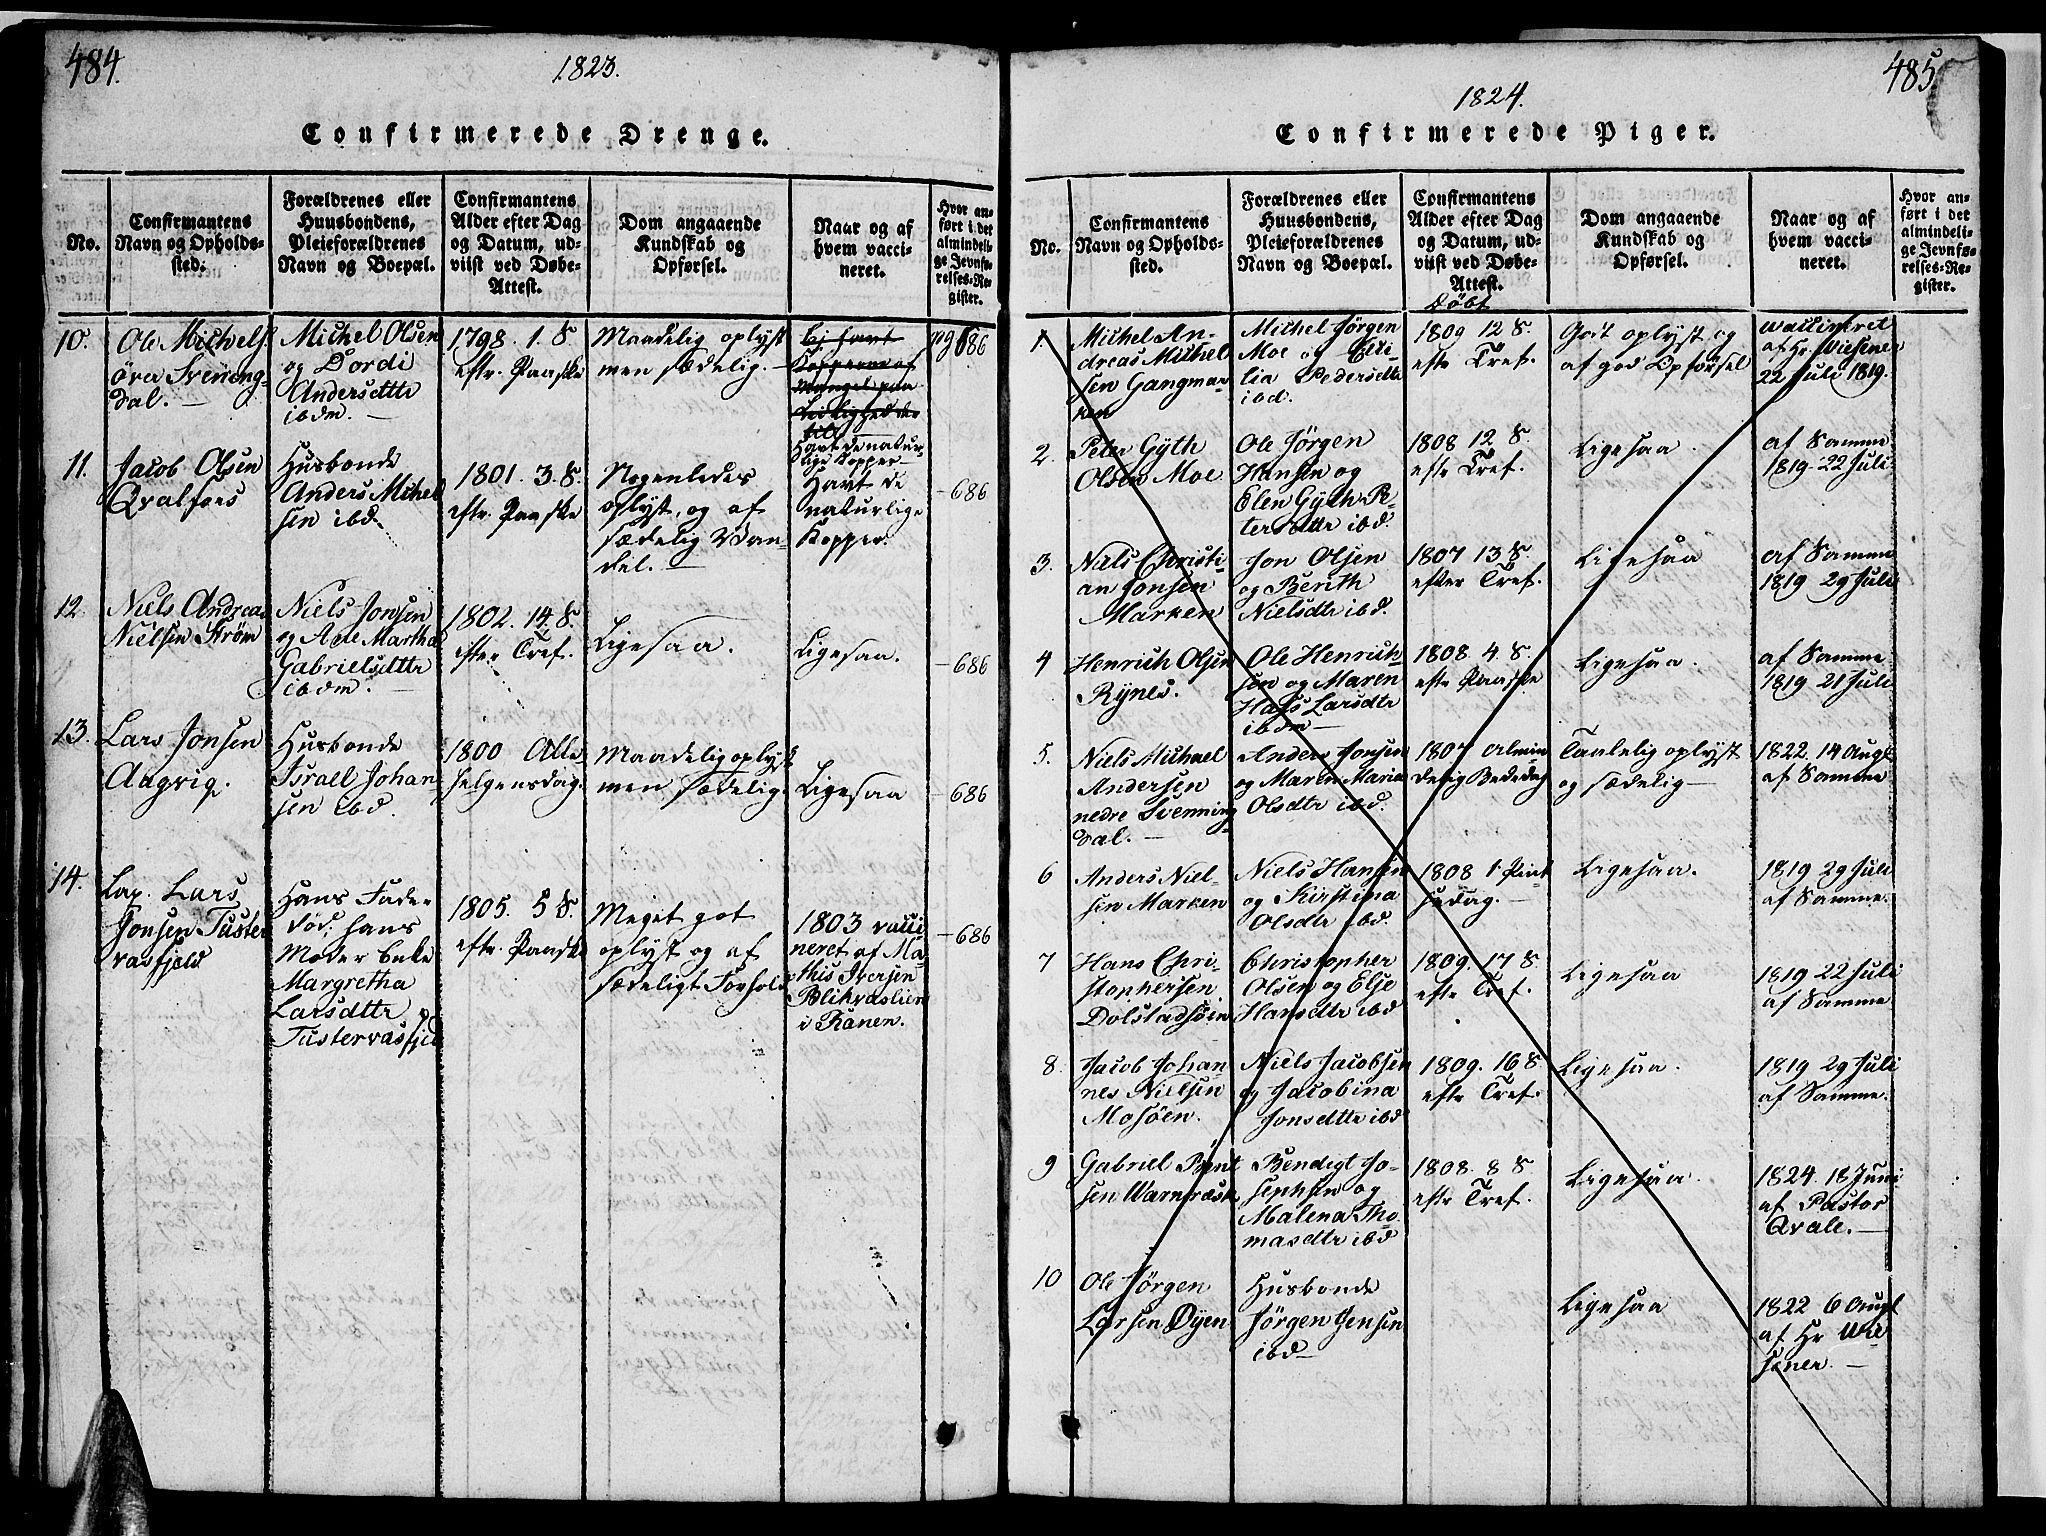 484.
1823.
Confirmerede Drenge.
No.
Confirmantens
Navn og Opholds-
sted.
Forældrenes eller
Huusbondens,
Pleieforældrenes
Navn og Boepæl.
Confirmantens
Alder efter Dag
og Datum, ud-
viist ved Døbe-
Attest.
Dom angaaende
Kundskab og
Opførsel.
Naar og af
hvem vacci-
neret.
Hvor an-
ført i det
almindeli-
ge Jevnfø-
relses-Re-
gister.
10.
Ole Michels.
övre Svening-
dal.
Michel Olsen
og Dordi
Andersdttr
ibdm.
1798. 1. S.
eftr. Paaske
Maadelig oplyst
men sædelig.
Ej havt
Kopperne af
Mangel paa
Leilighed der
til
Havt de natur-
lige Kopper
pag 686
11.
Jacob Olsen
Qvalfors
Husbonde
Anders Michel
sen ibd.
1801. 3. S.
eftr. Paaske
Nogenledes
oplyst, og af
sædelig Van-
del.
Havt de
naturlige
Kopper.
- 686
12.
Niels Andreas
Nielsen Strøm
Niels Jonsen
og Ane Martha
Gabrielsdttr
ibdm.
1802. 14. S.
efter Tref.
Ligesaa.
Ligesaa.
- 686
13.
Lars Jonsen
Aagvig.
Husbonde
Israel Johan
sen ibd.
1800 Alle
helgensdag.
Maadelig oplyst
men sædelig.
Ligesaa
- 686
14.
Lap. Lars
Jonsen Tuster
vasfjeld
Hans Fader
död; hans
Moder Enke
Margretha
Larsdttr
Tustervasfjeld
1805. 5 S.
eftr. Paaske
Meget got
oplyst og af
sædeligt Forhold
1803 vacci
neret af Ma-
this Iversen
Blikvaslien
i Ranen.
- 686
485.
1824.
Confirmerede Piger.
No.
Confirmantens
Navn og Opholds-
sted.
Forældrenes eller
Huusbondens,
Pleieforældrenes
Navn og Boepæl.
Confirmantens
Alder efter Dag
og Datum, ud-
viist ved Døbe-
Attest.
Döbt
Dom angaaende
Kundskab og
Opførsel.
Naar og af
hvem vacci-
neret.
Hvor an-
ført i det
almindeli-
ge Jevnfø-
relses-Re-
gister.
1
Michel An-
dreas Michel
sen Gangmar-
ken
Michel Jörgen
Moe og
Pedersdttr
ibd.
1809 12 S.
eftr Tref.
Godt oplyst og
af god Opförsel
vaccineret
af Hr Wiesener
22 Juli 1819.
2.
Peter Gÿth
Olsen Moe
Ole Jörgen
Hansen og
Elen Gÿth Pe-
tersdttr ibd.
1808 12 S.
eftr Tref.
Ligesaa.
af Samme
1819. 22 Juli
3.
Niels Christi-
an Jonsen
Marken
Jon Olsen
og Berith
Nielsdtr ibd.
1807 13 S.
efter Tref.
Ligesaa
af Samme
1819 29 Juli
4
Henrich Olsen
Rÿnes.
Ole Henrich-
sen og Maren
Hans Larsdtr
ibdm
1808 4 S.
eftr Paaske
Ligesaa.
af Samme
1819 21 Juli
5.
Niels Michael
Andersen
nedre Svenning
dal.
Anders Jonsen
og Maren Maria
Olsdtr ibd.
1807 almin
delig Bededag
Taalelig oplyst
og sædelig
1822. 14 Augt
af Samme
6
Anders Niel-
sen Marken
Niels Hansen
og Kirstina
Olsdtr ibd.
1808 1 Pint
sedag.
Ligesaa.
1819 29 Juli
af Samme.
7
Hans Chri-
stophersen
Dolstadsöen
Christopher
Olsen og Else
Hansdtr ibd
1809. 17 S.
eftr Tref.
Ligesaa
1819 22 Juli
af Samme
8.
Jacob Johan-
nes Nielsen
Mosöen.
Niels Jacobsen
og Jacobina
Jonsdttr ibd
1809. 16 S.
eftr Tref.
Ligesaa.
1819 29 Juli
af Samme.
9
Gabriel Bent
sen Warnfræsk
Bendigt Jo-
sephsen og
Malena Tho-
masdtr ibd
1808. 8 S
eftr Tref.
Ligesaa.
1824. 18 Juni
af Pastor
Qvale.
10
Ole Jörgen
Larsen Öÿen
Husbonde
Jörgen Jensen
ibd
Ligesaa
1822 6 Augt
af Hr Wie
sener.